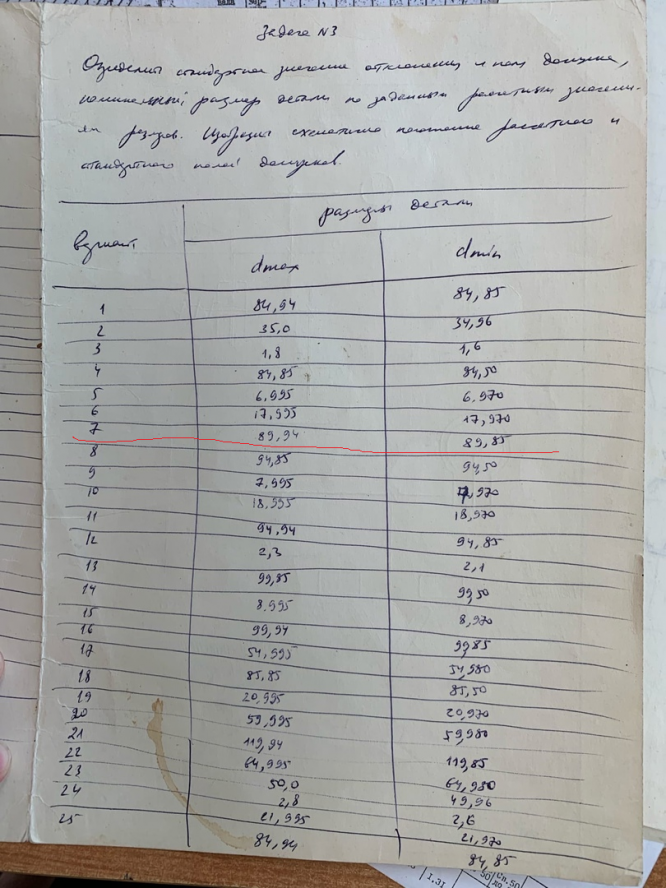 Задача №3
Определить стандартное значение отклонения и поля допусков,
номинальный размер детали по заданным расчетным значени-
ям размеров. Изобразить схематично положение расчетного и
стандартного полей допусков.
размеры детали
вариант
dmax dmin
1 84,94 84,85
2 35,0 34,96
3 1,8 1,6
4 84,85 84,50
5 6,995 6,970
6 17,995 17,970
7 89,94 89,85
8 94,85 94,50
9 7,995 7,970
10 18,995 18,970
11 94,94 94,85
12 2,3 2,1
13 99,85 99,50
14 8,995 8,970
15 99,94 99,85
16 54,995 54,980
17 85,85 85,50
18 20,995 20,970
19 59,995 59,980
20 119,94 119,85
21 64,995 64,980
22 50,0 49,96
23 2,8 2,6
24 21,995 21,970
25 84,94 84,85